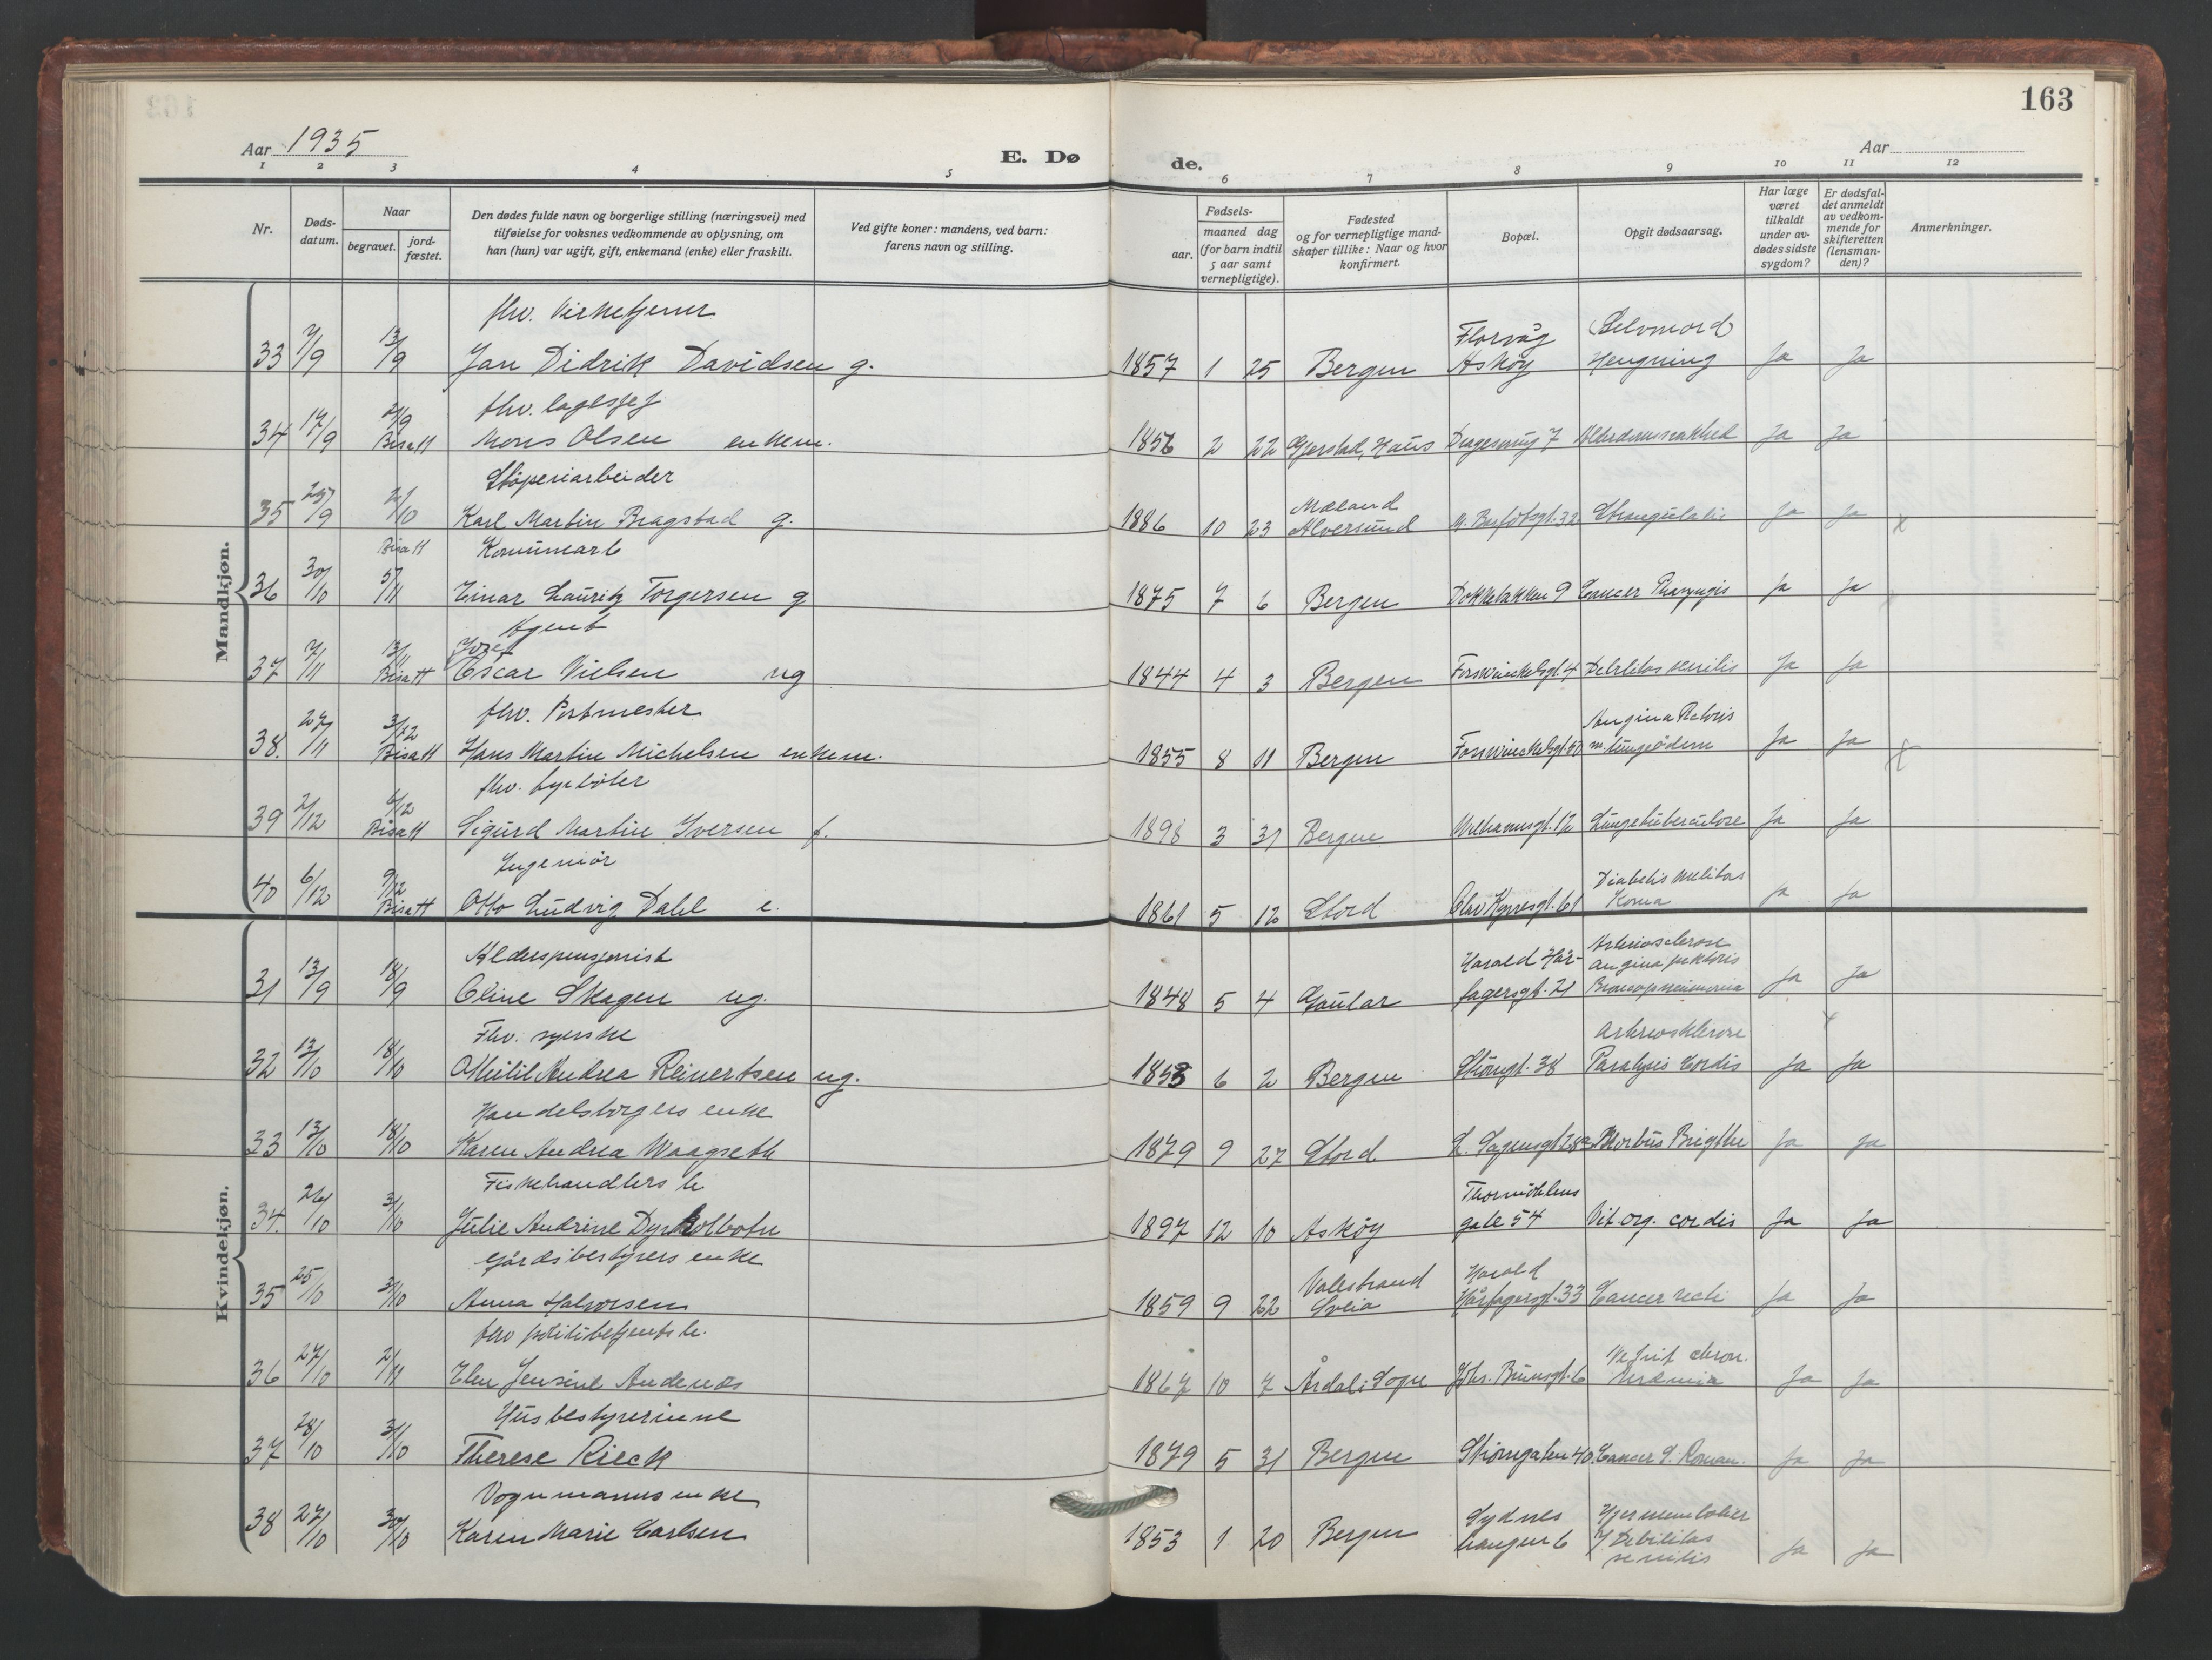 163
Aar 1935
E. Døde.
Aar
1 2 3 4 5 6 7 8 9 10 11 12
Nr.
Døds-datum.
Naar
begravet.
jord-fæstet.
Den dødes fulde navn og borgerlige stilling (næringsvei) med
tilføielse for voksnes vedkommende av oplysning, om
han (hun) var ugift, gift, enkemand (enke) eller fraskilt.
Ved gifte koner: mandens, ved barn:
farens navn og stilling.
Fødsels-
aar.
maaned dag
(for barn indtil
5 aar samt
vernepligtige).
Fødested
og for vernepligtige mand-
skaper tillike: Naar og hvor
konfirmert.
Bopæl.
Opgit dødsaarsag.
Har læge
været
tilkaldt
under av-
dødes sidste
sygdom?
Er dødsfal-
det anmeldt
av vedkom-
mende for
skifteretten
(lensman-
den)?
Anmerkninger.
Mandkjøn.
fhv. Kirketjener
33 7/9 13/9 Jan Didrik Davidsen g. 1857 1 25 Bergen Florvåg Askøy Selvmord Hengning Ja Ja
fhv.
34 17/9 21/9 Bisatt Mons Olsen enkem. 1856 2 22 Gjerstad, Haus 7 Ja Ja
Støperiarbeider
35 25/9 2/10 Karl Martin Bragstad g. 1886 10 23 Mæland Alversund 32 Strangulatio Ja Ja x
Bisatt
36 30/10 5/11 Einar Lauritz Torgersen g 1875 7 6 Bergen Dokkebakken 9 Cancer Ja Ja
Agent
37 7/11 13/11 Bisatt Oscar Nielsen ug 1844 4 3 Bergen Fosswinckelsgt. 4 Debilitas senilis Ja Ja
fhv. Postmester
38. 27/11 3/12 Bisatt Hans Martin Michelsen enkem. 1855 8 11 Bergen Fosswinckelsgt. Angina Pectoris m. lungeödem Ja Ja x
fhv. fyrbøter
39 2/12 6/12 Bisatt Sigurd Martin Iversen f. 1898 3 31 Bergen Welhavensgt. 12 Lungetuberculose Ja Ja
Ingeniør
40 6/12 9/12 Bisatt Otto Ludvig Dahl e. 1861 5 12 Stord Olav Kyrresgt. 61 Diabetis melitus Koma Ja Ja
Kvindekjøn.
Alderspensjonist
31 13/9 18/9 Oline Skagen ug. 1848 5 4 Gaular Harald Hår-fagersgt. 21 Arteriosclerose angina pektoris Broncopneumonia Ja Ja
Fhv. syerske
32 13/10 18/10 Othilie Andrea Reinertsen ug. 1853 6 2 Bergen Strömgt. 38 Arterioskleros Paralysis Cordis Ja Ja
Handelsborgers enke
33 13/10 18/10 Karen Andrea Waagseth 1879 9 27 Stord L. Sagensgt 28a Morbus Brigthi Ja Ja
Fiskehandlers h
34. 26/10 31/10 Julie Andrine Dyrkolbotn 1897 12 10 Askøy Thormöhlens gate 54 Vit. org. cordis Ja Ja
Gårdsbestyrers enke
35 25/10 31/10 Anna Halvorsen 1859 9 22 Valestrand Sveia Harald Hårfagersgt. 33 Cancer recti Ja Ja
fhv politibetjents h.
36 27/10 2/11 Elen Jensine Andenæs 1867 10 7 Årdal i Sogn Joh. Brunsgt. 6 Nefrit chron. Uræmia Ja Ja
Husbestyrerinne
37 28/10 31/10 Therese Rieck 1879 5 31 Bergen Strömgaten 40. Cancer S. Roman. Ja Ja
Vognmanns enke
38 27/10 30/10 Karen Marie Carlsen 1853 1 20 Bergen Sydnes haugen 6 Debilitas senilis Ja Ja